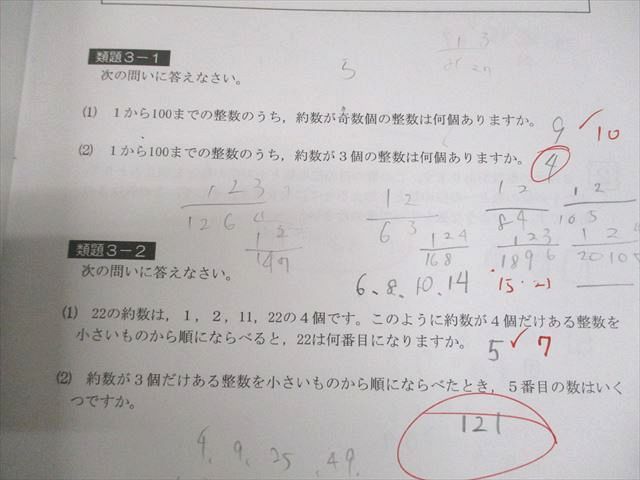 類題3-1
次の問いに答えなさい。
(1) 1から100までの整数のうち，約数が奇数個の整数は何個ありますか。 9 10
(2) 1から100までの整数のうち，約数が3個の整数は何個ありますか。 4
1 2 3
12 6 4
1 2
6 3
1 2
8 4
1 2
10 5
1 2
14 7
1 2 4
16 8
1 2 3
18 9 6
1 2 4
20 10
類題3-2
次の問いに答えなさい。
6、8、10、14 15・21
(1) 22の約数は，1，2，11，22の4個です。このように約数が4個だけある整数を
小さいものから順にならべると，22は何番目になりますか。 5 7
(2) 約数が3個だけある整数を小さいものから順にならべたとき，5番目の数はいく
つですか。
121
4、9、25、49、